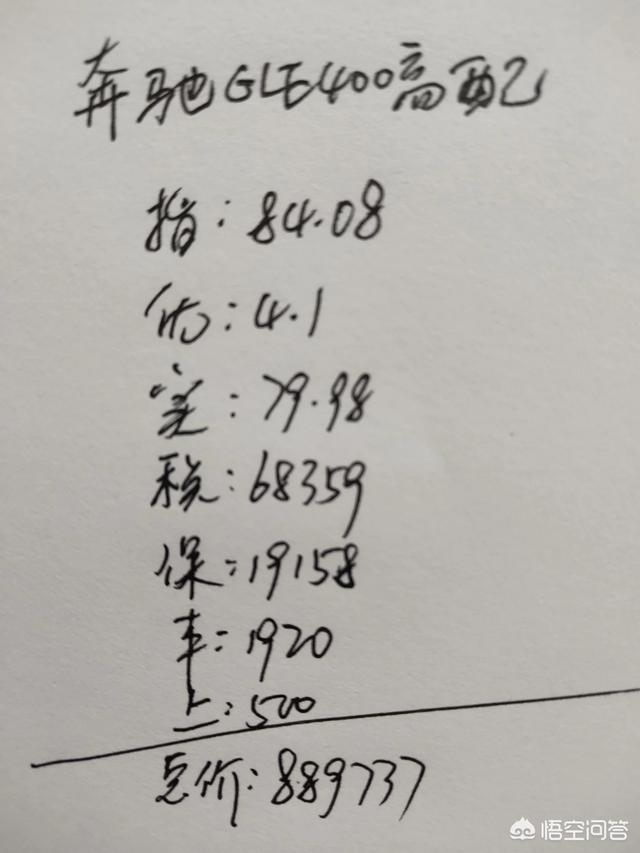 奔驰GLE400高配
指:84.08
优:4.1
实:79.98
税:68359
保:19158
车:1920
上:500
总价:889737
悟空问答